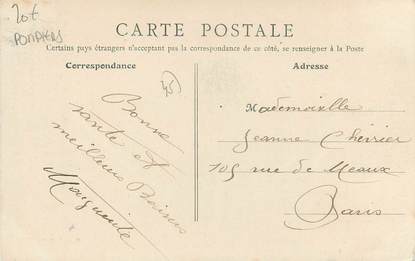 20€
POMPIERS
CARTE POSTALE
Certains pays étrangers n'acceptant pas la correspondance de ce côté, se renseigner à la Poste
Correspondance
Adresse
45
Bonne
santé et
meilleurs Baisers
Marguerite
Mademoiselle
Jeanne Chérrier
105 rue de Meaux
Paris